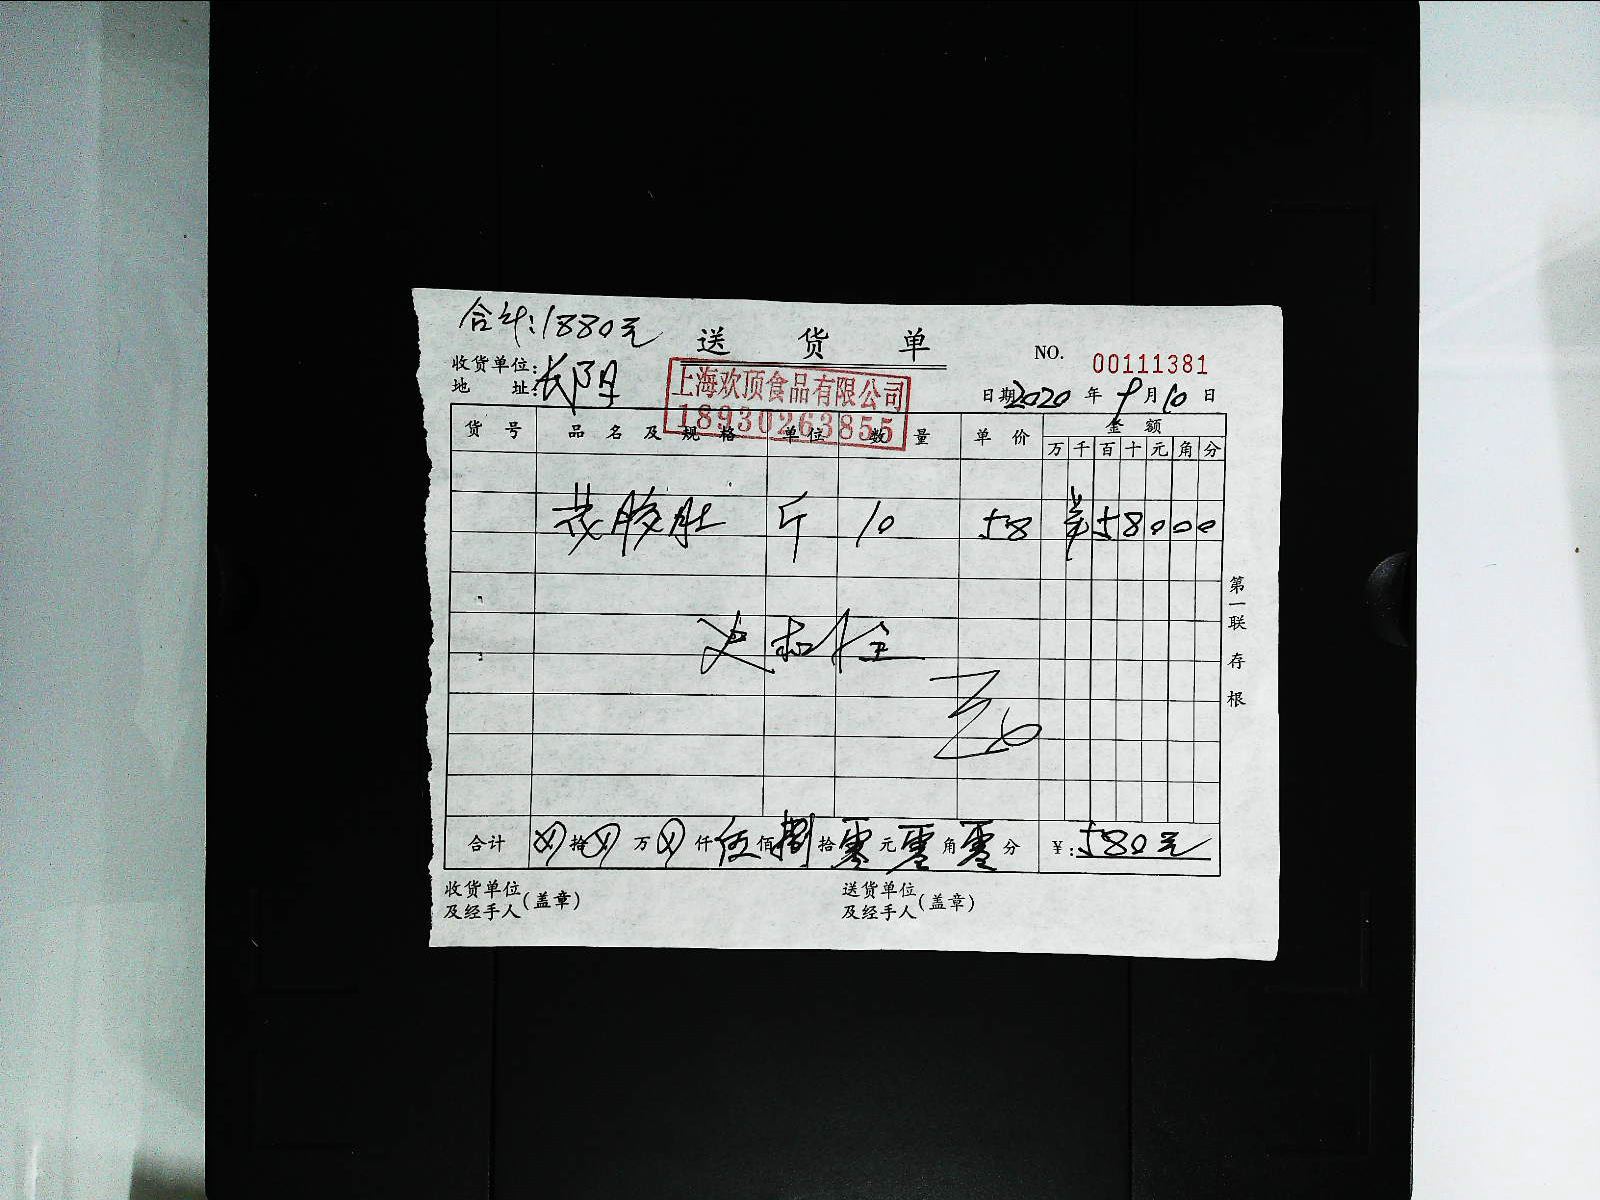 合计:1880元
送 货 单
NO. 00111381
收货单位:
地 址: 长阳
上海欢顶食品有限公司
18930263855
日期 2020 年 9 月 10 日
货 号 品 名 及 规 格 单 位 数 量 单 价 金 额
万 千 百 十 元 角 分
斤 10 58 58000
第一联 存根
合计 拾 万 仟 伍 佰 捌 拾 零 元 零 角 零 分 ¥: 580元
收货单位及经手人(盖章) 送货单位及经手人(盖章)